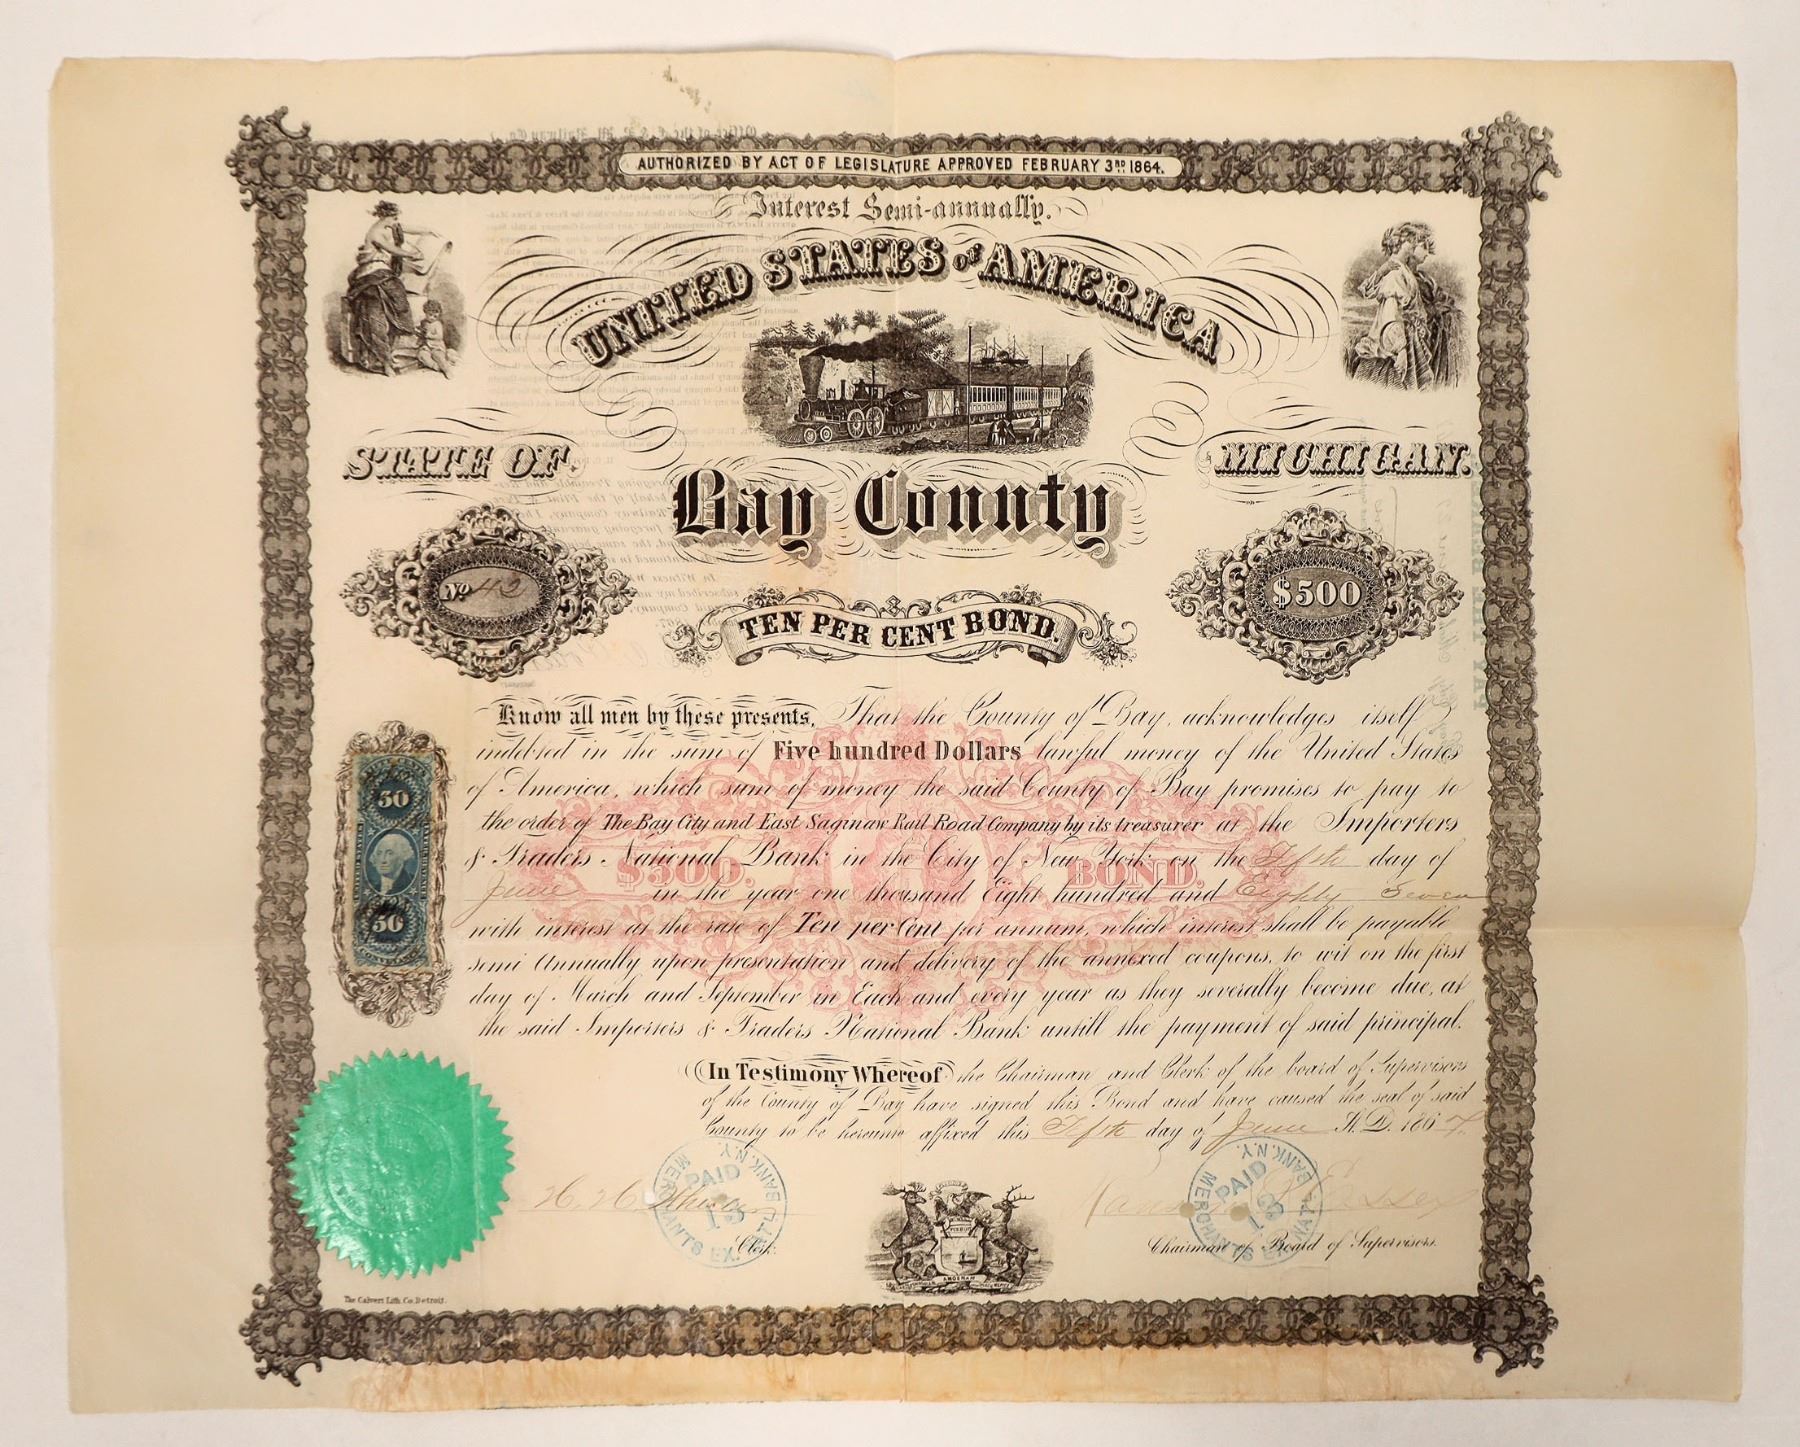 AUTHORIZED BY ACT OF LEGISLATURE APPROVED FEBRUARY 3RD 1864.
Interest Semi-annually.
UNITED STATES OF AMERICA
STATE OF
MICHIGAN.
Bay County
No 42
$500
TEN PER CENT BOND.
Know all men by these presents, That the County of Bay, acknowledges itself
indebted in the sum of Five hundred Dollars lawful money of the United States
of America, which sum of money the said County of Bay promises to pay to
the order of The Bay City and East Saginaw Rail Road Company by its treasurer at the Importers
& Traders National Bank in the City of New York on the Fifth day of
June in the year one thousand Eight hundred and Eighty Seven
with interest at the rate of Ten per Cent per annum, which interest shall be payable
semi Annually upon presentation and delivery of the annexed coupons, to wit on the first
day of March and September in Each and every year as they severally become due, at
the said Importers & Traders National Bank untill the payment of said principal.
$500. BOND.
50
50
In Testimony Whereof the Chairman and Clerk of the board of Supervisors
of the County of Bay have signed this Bond and have caused the seal of said
County to be hereunto affixed this Fifth day of June A.D. 1867.
H. H.
Clerk
PAID
13
MERCHANTS EX. NAT'L BANK, N.Y.
PAID
13
MERCHANTS EX. NAT'L BANK, N.Y.
Chairman of Board of Supervisors.
TUEBOR
The Calvert Lith. Co. Detroit.